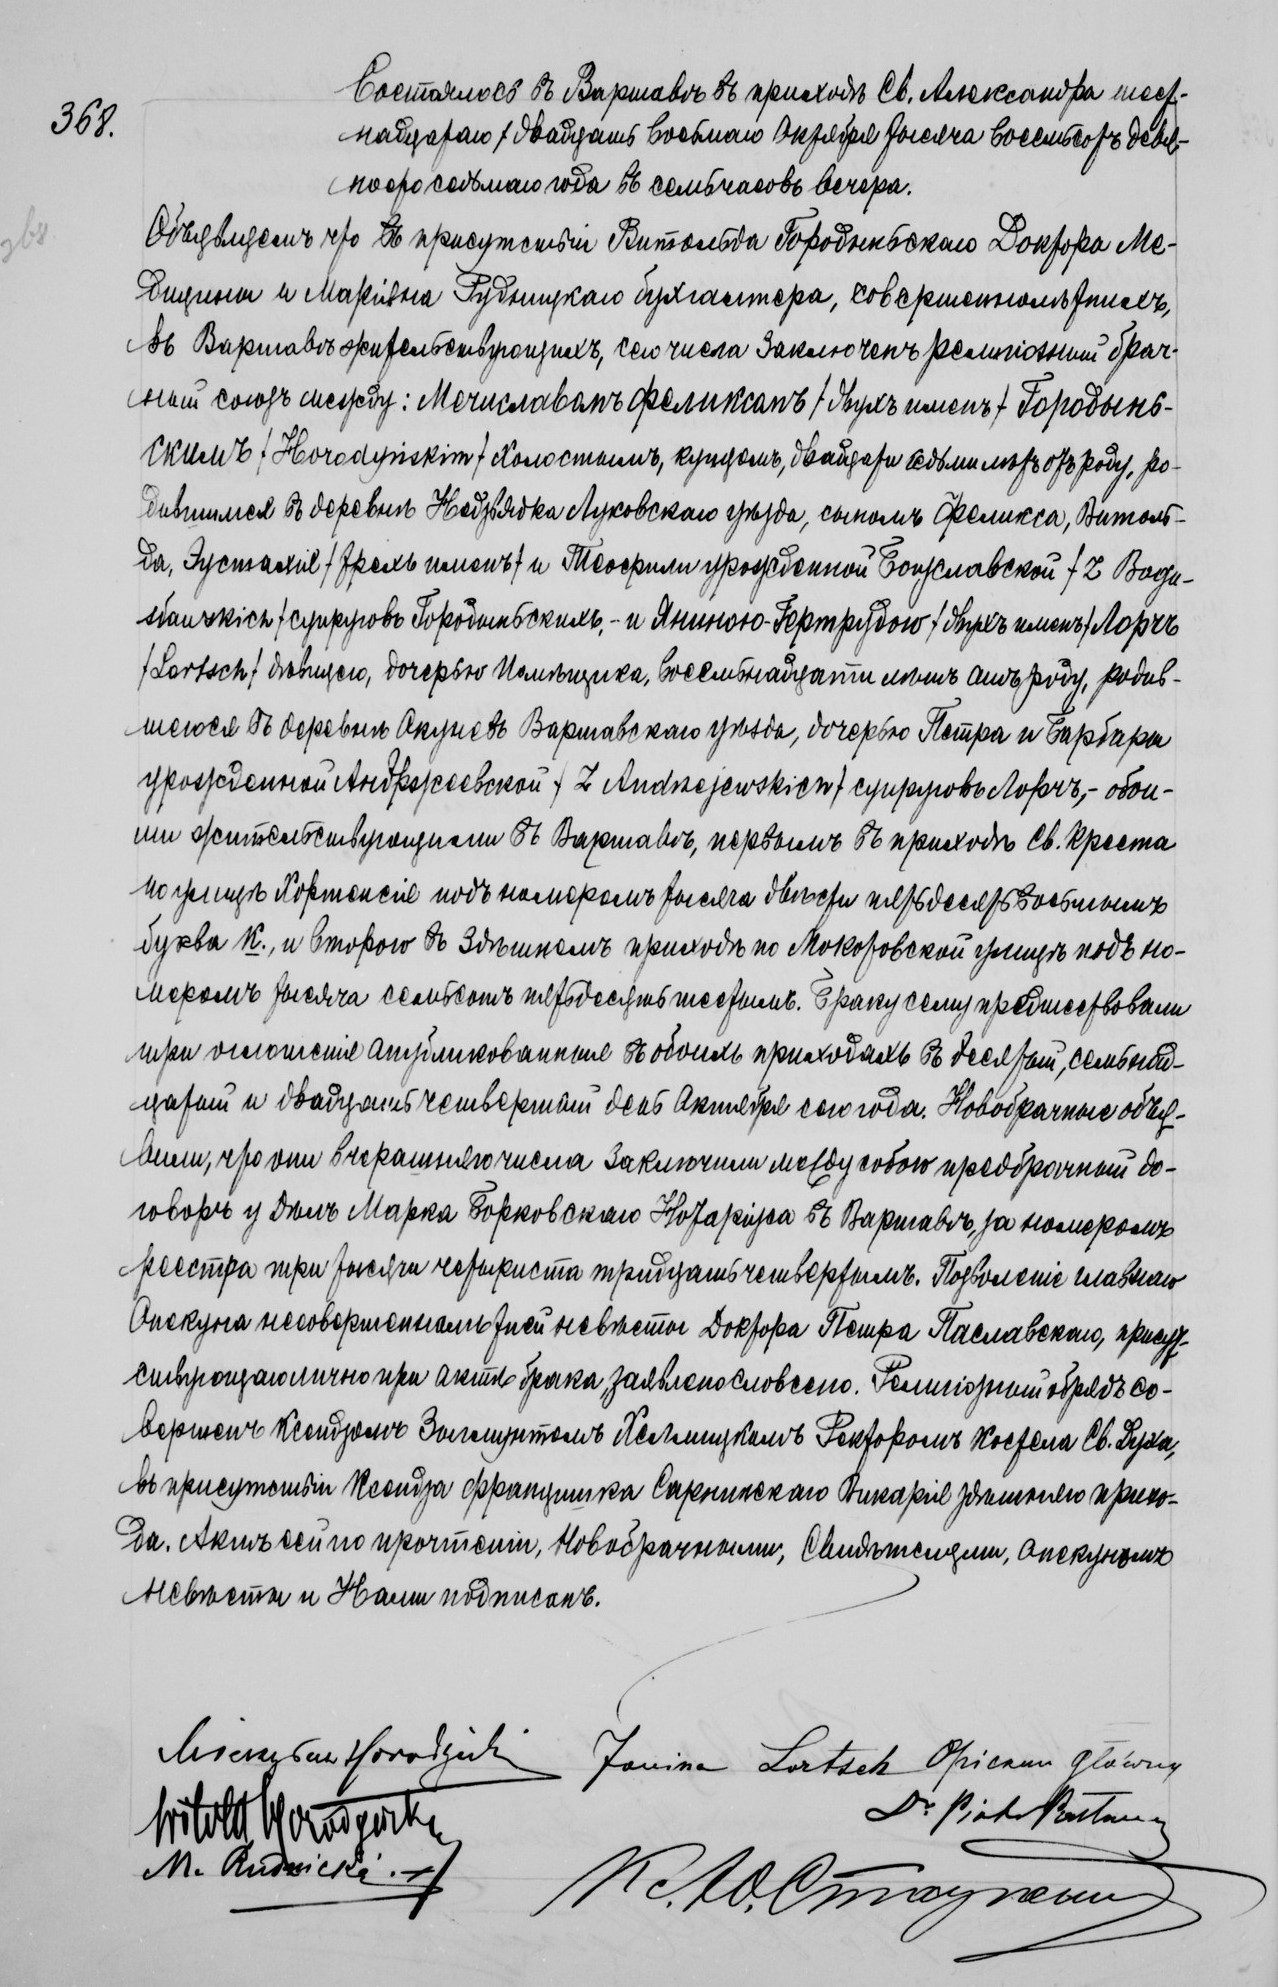 368.
Состоялось въ Варшавѣ въ приходѣ Св. Александра шест-
надцатаго / двадцать восьмаго Октября тысяча восемьсотъ девя-
носто седьмаго года въ семь часовъ вечера.
Объявляемъ что въ присутствіи Витольда Городыньскаго Доктора Ме-
дицины и Маріяна Рудницкаго бухгалтера, совершеннолѣтнихъ,
въ Варшавѣ жительствующихъ, сего числа заключенъ религіозный брач-
ный союзъ между: Мечиславомъ Феликсомъ / двухъ именъ / Городынь-
скимъ / Horodyńskim / холостымъ, купцомъ, двадцати седьми лѣтъ отъ роду, ро-
дившимся въ деревнѣ Недзвядка Луковскаго уѣзда, сыномъ Феликса, Витоль-
да, Эустахія / трехъ именъ / и Теофили урожденной Богуславской / z Bogu-
sławskich / супруговъ Городыньскихъ, - и Яниною-Гертрудою / двухъ именъ / Лорчъ
/ Lortsch / дѣвицею, дочерью помѣщика, восемьнадцати лѣтъ отъ роду, родив-
шеюся въ деревнѣ Окуневъ Варшавскаго уѣзда, дочерью Петра и Барбары
урожденной Андржеевской / z Andrzejewskich / супруговъ Лорчъ, - обои-
ми жительствующими въ Варшавѣ, первымъ въ приходѣ Св. Креста
по улицѣ Хортенсія подъ номеромъ тысяча двѣсти пятьдесятъ восьмымъ
буква К., и второю въ здѣшнемъ приходѣ по Мокотовской улицѣ подъ но-
меромъ тысяча семьсотъ пятьдесятъ шестымъ. Браку сему предшествовали
три оглашенія опубликованныя въ обоихъ приходахъ въ десятый, семьнад-
цатый и двадцать четвертый день Октября сего года. Новобрачные объя-
вили, что они вчерашняго числа заключили между собою предбрачный до-
говоръ у дѣлъ Марка Борковскаго Нотаріуса въ Варшавѣ, за номеромъ
реестра три тысячи четыреста тридцать четвертымъ. Позволеніе главнаго
Опекуна несовершеннолѣтней невѣсты Доктора Петра Паславскаго, присут-
ствующаго лично при актѣ брака, заявлено словесно. Религіозный обрядъ со-
вершенъ Ксендзомъ Зыгмунтомъ Хелмицкимъ Ректоромъ Костела Св. Духа,
въ присутствіи Ксендза Францишка Сарнинскаго Викарія здѣшняго прихо-
да. Актъ сей по прочтеніи, Новобрачными, Свидѣтелями, Опекуномъ
невѣсты и Нами подписанъ.
Mieczysław Horodyński Janina Lortsch Opiekun główny
Witold Horodyński Dr Piotr
M. Rudnicki